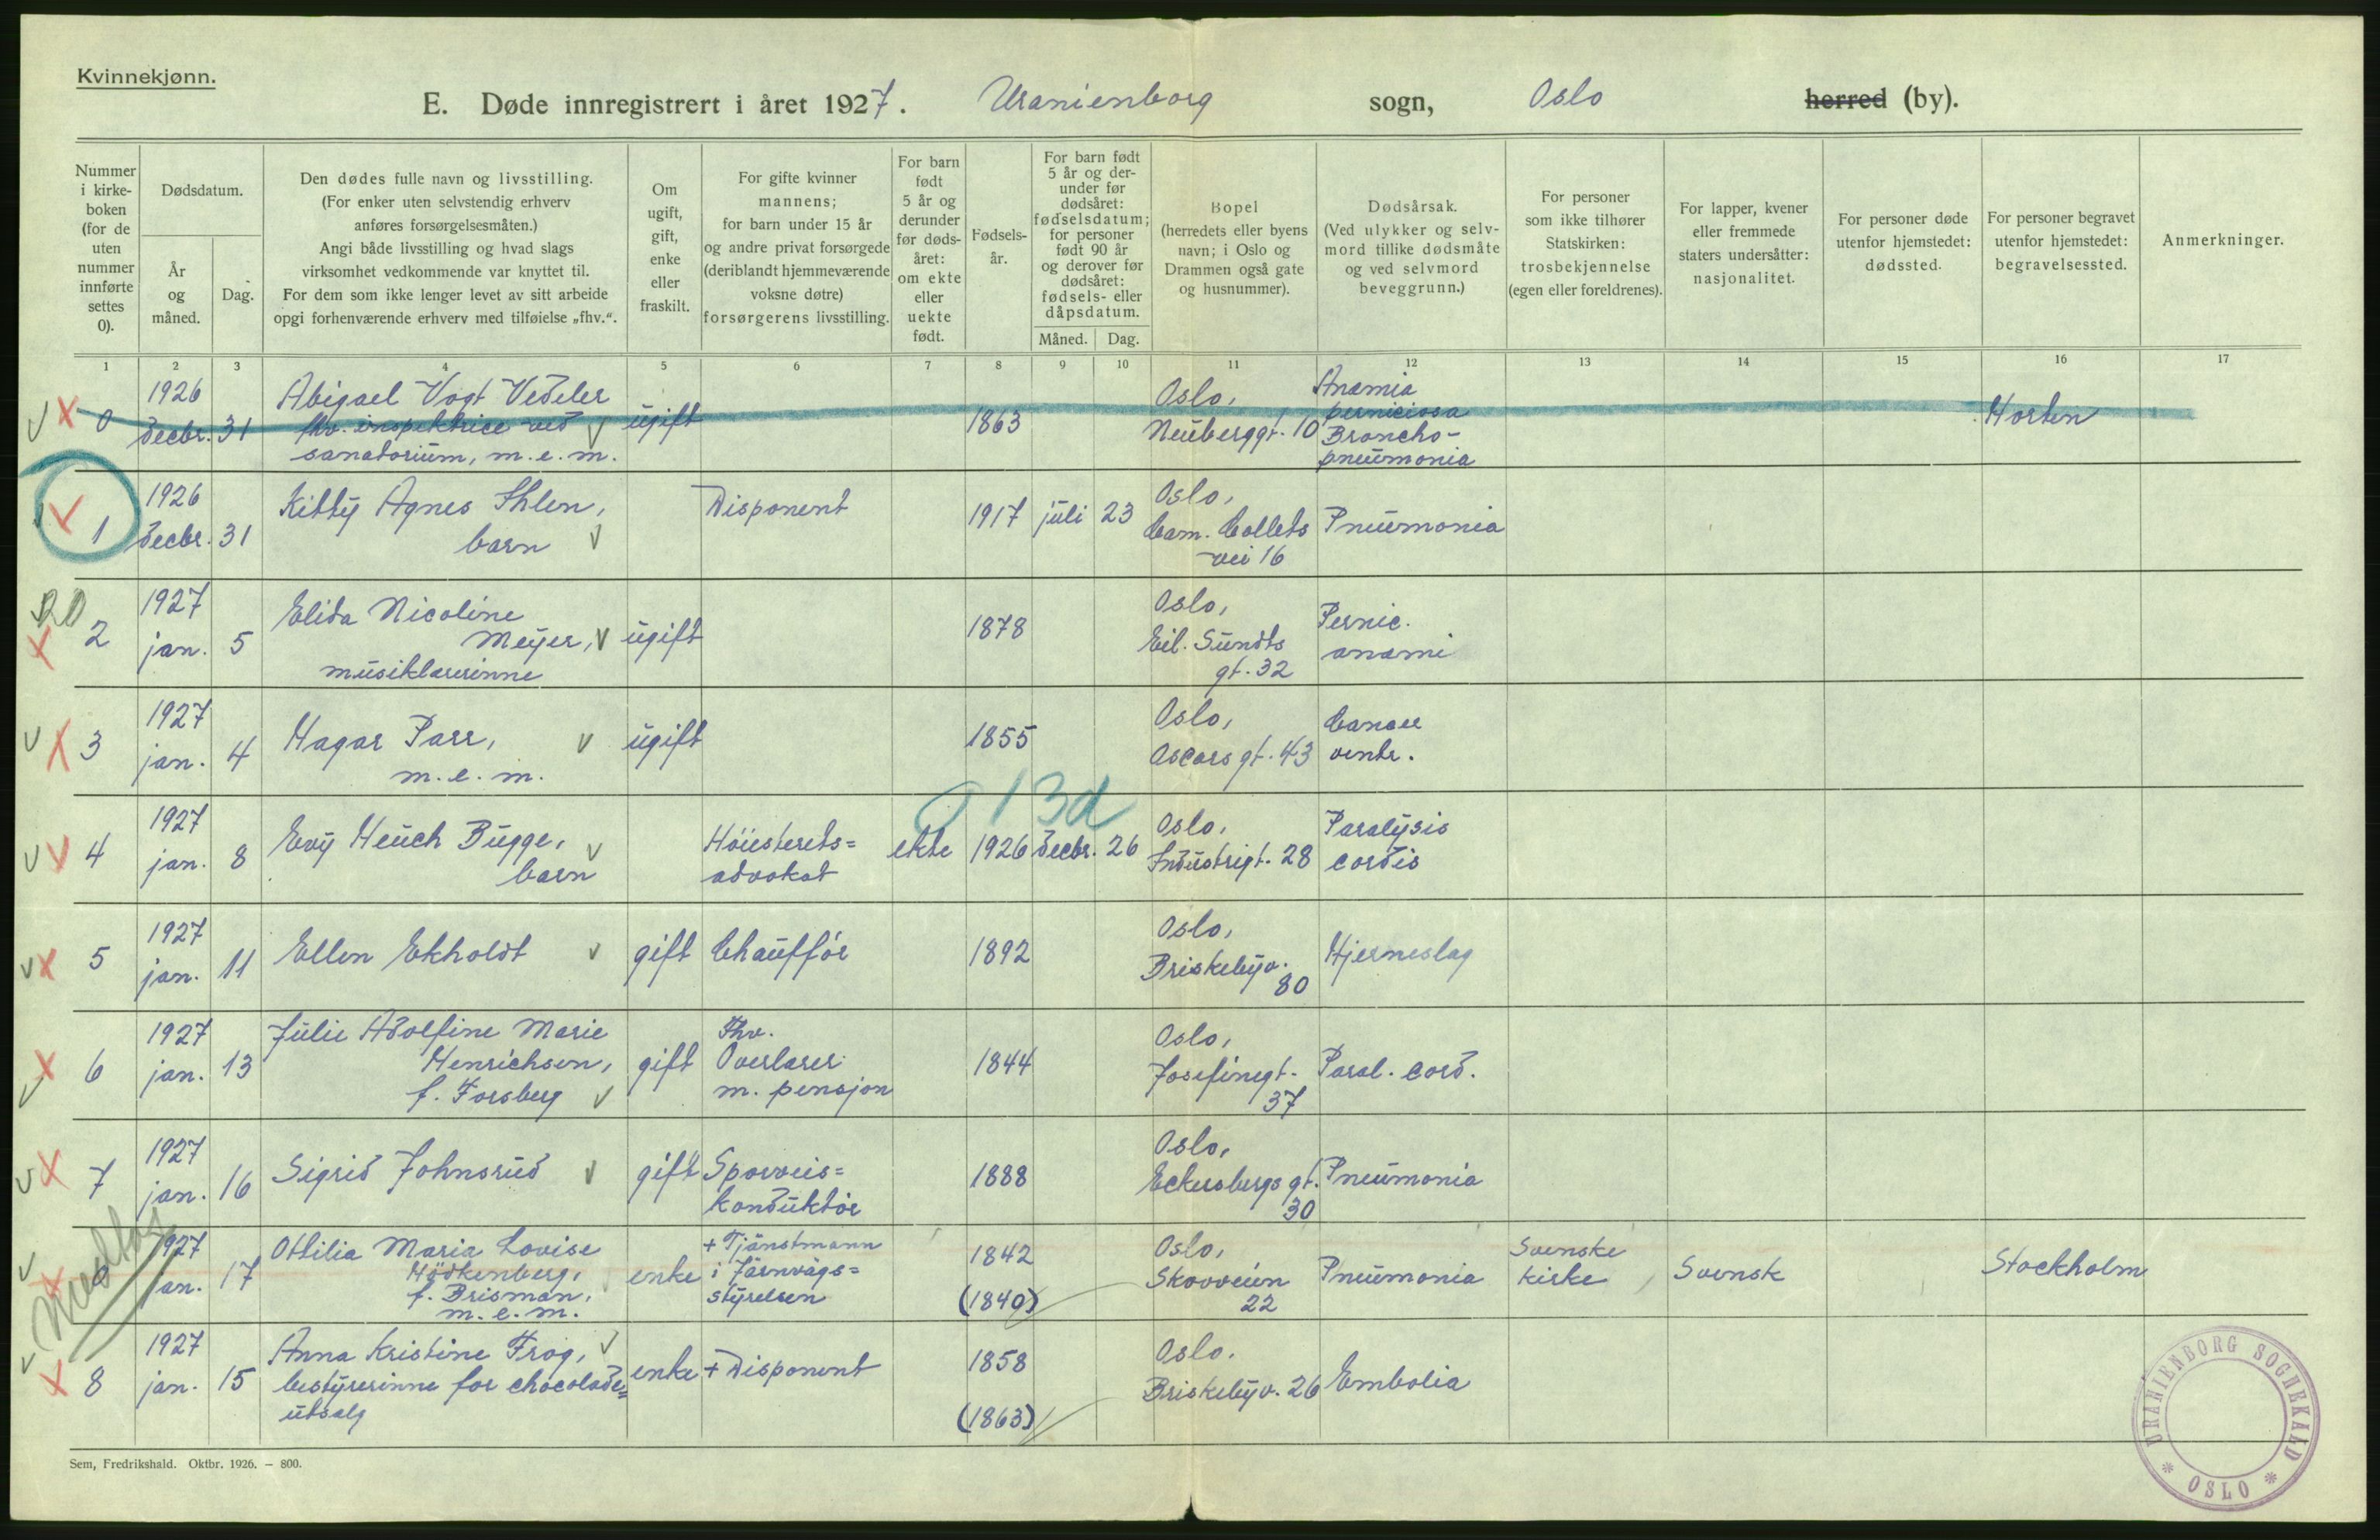 Kvinnekjønn.
E. Døde innregistrert i året 1927. Uranienborg sogn, Oslo herred (by).
Nummer
i kirke-
boken
(for de
uten
nummer
innførte
settes
0).
Dødsdatum.
År
og
måned.
Dag.
Den dødes fulle navn og livsstilling.
(For enker uten selvstendig erhverv
anføres forsørgelsesmåten.)
Angi både livsstilling og hvad slags
virksomhet vedkommende var knyttet til.
For dem som ikke lenger levet av sitt arbeide
opgi forhenværende erhverv med tilføielse „fhv.“.
Om
ugift,
gift,
enke
eller
fraskilt.
For gifte kvinner
mannens;
for barn under 15 år
og andre privat forsørgede
(deriblandt hjemmeværende
voksne døtre)
forsørgerens livsstilling.
For barn
født
5 år og
derunder
før døds-
året:
om ekte
eller
uekte
født.
Fødsels-
år.
For barn født
5 år og der-
under før
dødsåret:
fødselsdatum;
for personer
født 90 år
og derover før
dødsåret:
fødsels- eller
dåpsdatum.
Måned. Dag.
Bopel
(herredets eller byens
navn; i Oslo og
Drammen også gate
og husnummer).
Dødsårsak.
(Ved ulykker og selv-
mord tillike dødsmåte
og ved selvmord
beveggrunn.)
For personer
som ikke tilhører
Statskirken:
trosbekjennelse
(egen eller foreldrenes).
For lapper, kvener
eller fremmede
staters undersåtter:
nasjonalitet.
For personer døde
utenfor hjemstedet:
dødssted.
For personer begravet
utenfor hjemstedet:
begravelsessted.
Anmerkninger.
1 2 3 4 5 6 7 8 9 10 11 12 13 14 15 16 17
0
1926
decbr. 31
Abigael Vogt Vedeler
fhv. inspektrice ved
sanatorium, m.e.m.
ugift
1863
Oslo,
Neuberggt. 10
Anæmia
perniciosa
Broncho-
pneumonia
Horten
1
1926
decbr. 31
Kitty Agnes Ihlen,
barn
Disponent
1917 juli 23
Oslo,
Cam. Collets
vei 16
Pneumonia
2
1927
jan. 5
Elida Nicoline
Meyer,
musiklærerinne
ugift
1878
Oslo,
Eil. Sundts
gt. 32
Pernic.
anæmi
3
1927
jan. 4
Hagar Parr,
m.e.m.
ugift
1855
Oslo,
Oscars gt. 43
Cancer
ventr.
4
1927
jan. 8
Evy Heuch Bugge,
barn
Høiesterets=
advokat
ekte
1926 decbr. 26
13d
Oslo,
Industrigt. 28
Paralysis
cordis
5
1927
jan. 11
Ellen Ekholdt
gift
Chauffør
1892
Oslo,
Briskebyv.
80
Hjerneslag
6
1927
jan. 13
Julie Adolfine Marie
Henrichsen,
f. Forsberg
gift
Fhv.
Overlærer
m. pensjon
1844
Oslo,
Josefinegt.
37
Paral. cord.
7
1927
jan. 16
Sigrid Johnsrud
gift
Sporveis=
konduktør
1888
Oslo,
Eckersbergs gt.
30
Pneumonia
0
1927
jan. 17
Ottilia Maria Lovise
Hödkenberg,
f. Brisman,
m.e.m.
enke
+ Tjänstmann
i Järnvägs=
styrelsen
1842
(1840)
Oslo,
Skovveien
22
Pneumonia
Svenske
kirke
Svensk
Stockholm
8
1927
jan. 15
Anna Kristine Frog,
bestyrerinne for chocolade=
utsalg
enke
+ Disponent
1858
(1863)
Oslo.
Briskebyv. 26
Embolia
Sem, Fredrikshald. Oktbr. 1926. — 800.
URANIENBORG SOGNEKALD
* OSLO *